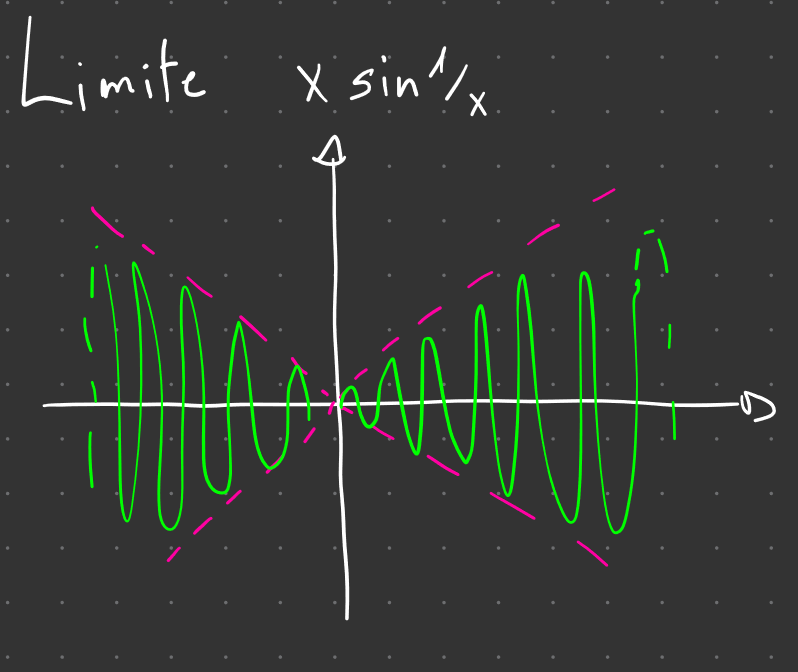 Limite x sin 1/x